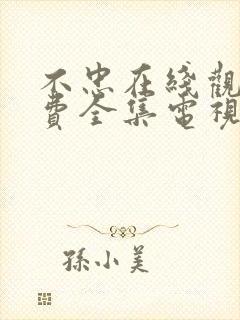 不忠在綫觀
費全集電視
孫小美